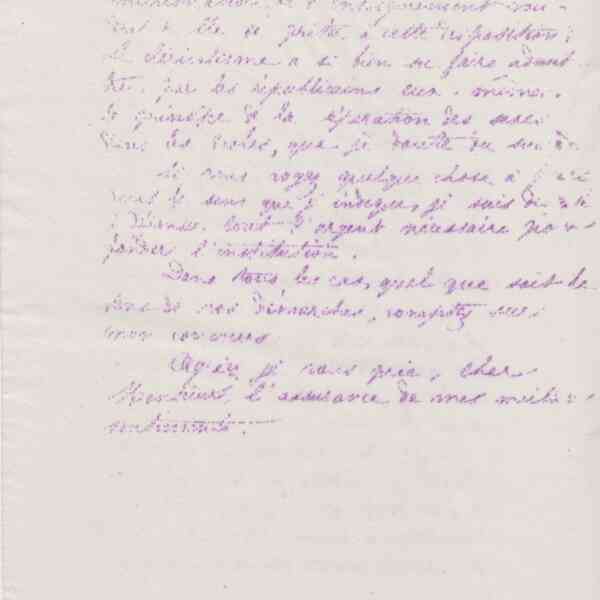 l'enseignement
à cette disposition;
le cléricalisme a si bien su faire admet-
tre, par les républicains eux-mêmes,
le principe de la séparation des sexes
dans les écoles, que je doute du
Si vous voyez quelque chose à
dans le sens que j'indique, je suis
à dépenser tout l'argent nécessaire pour
fonder l'institution.
Dans tous les cas, quel que soit le
de vos démarches, comptez sur
mon concours.
Agréez je vous prie, cher
Monsieur, l'assurance de mes meilleurs
sentiments.